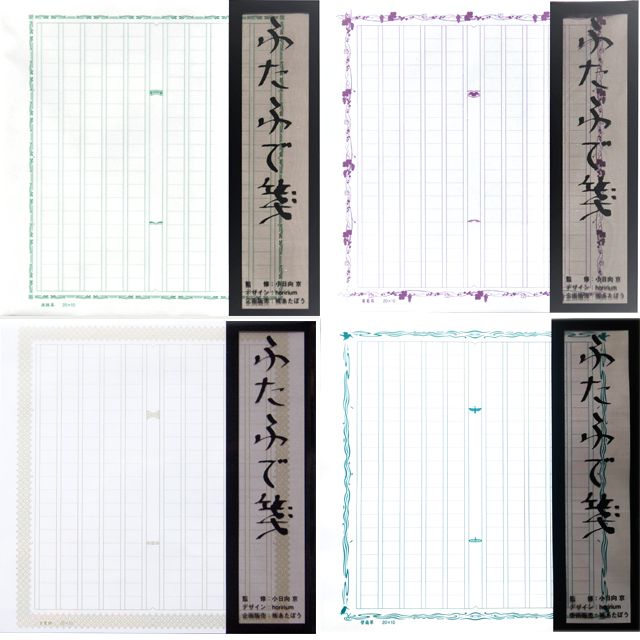 ふたふで箋
監　修：小日向 京
デザイン：horirium
企画販売：㈱あたぼう
20×10
ふたふで箋
監　修：小日向 京
デザイン：horirium
企画販売：㈱あたぼう
20×10
ふたふで箋
監　修：小日向 京
デザイン：horirium
企画販売：㈱あたぼう
20×10
ふたふで箋
監　修：小日向 京
デザイン：horirium
企画販売：㈱あたぼう
20×10